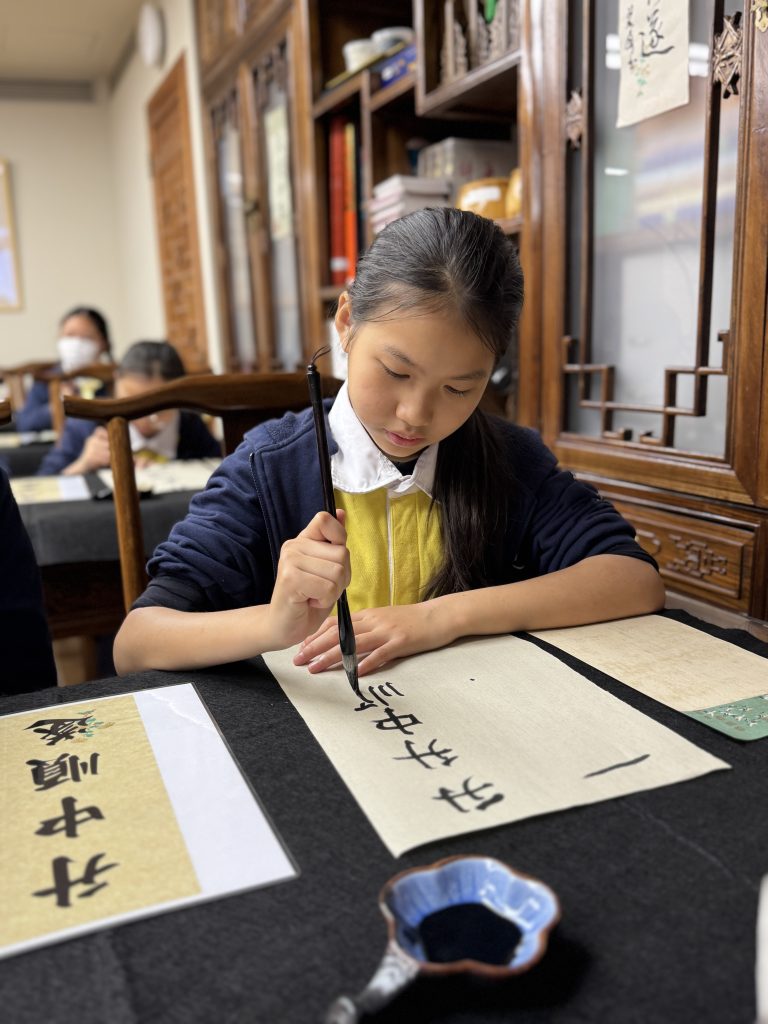 升中順遂
升升中
遂